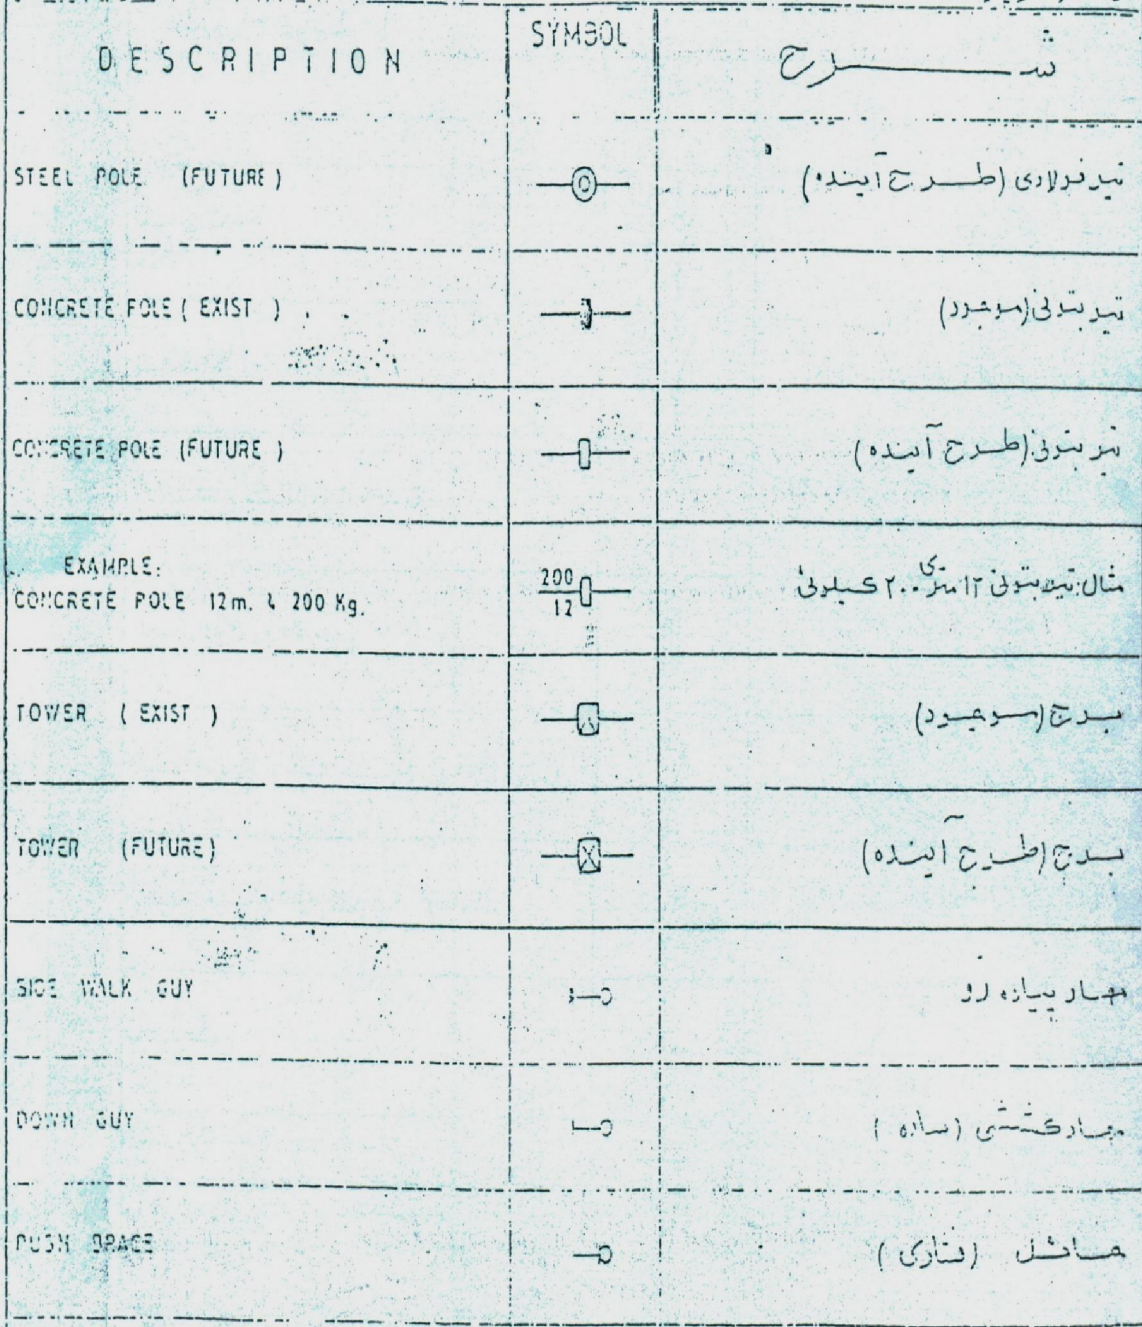 DESCRIPTION
SYMBOL
شرح
STEEL POLE (FUTURE)
تیر فولادی (طرح آینده)
CONCRETE POLE (EXIST)
تیر بتونی (موجود)
CONCRETE POLE (FUTURE)
تیر بتونی (طرح آینده)
EXAMPLE:
CONCRETE POLE 12m. & 200 Kg.
200
12
مثال: تیر بتونی ۱۲ متری ۲۰۰ کیلوئی
TOWER (EXIST)
برج (موجود)
TOWER (FUTURE)
برج (طرح آینده)
SIDE WALK GUY
مهار پیاده رو
DOWN GUY
مهار کششی (ساده)
PUSH BRACE
حائل (فشاری)